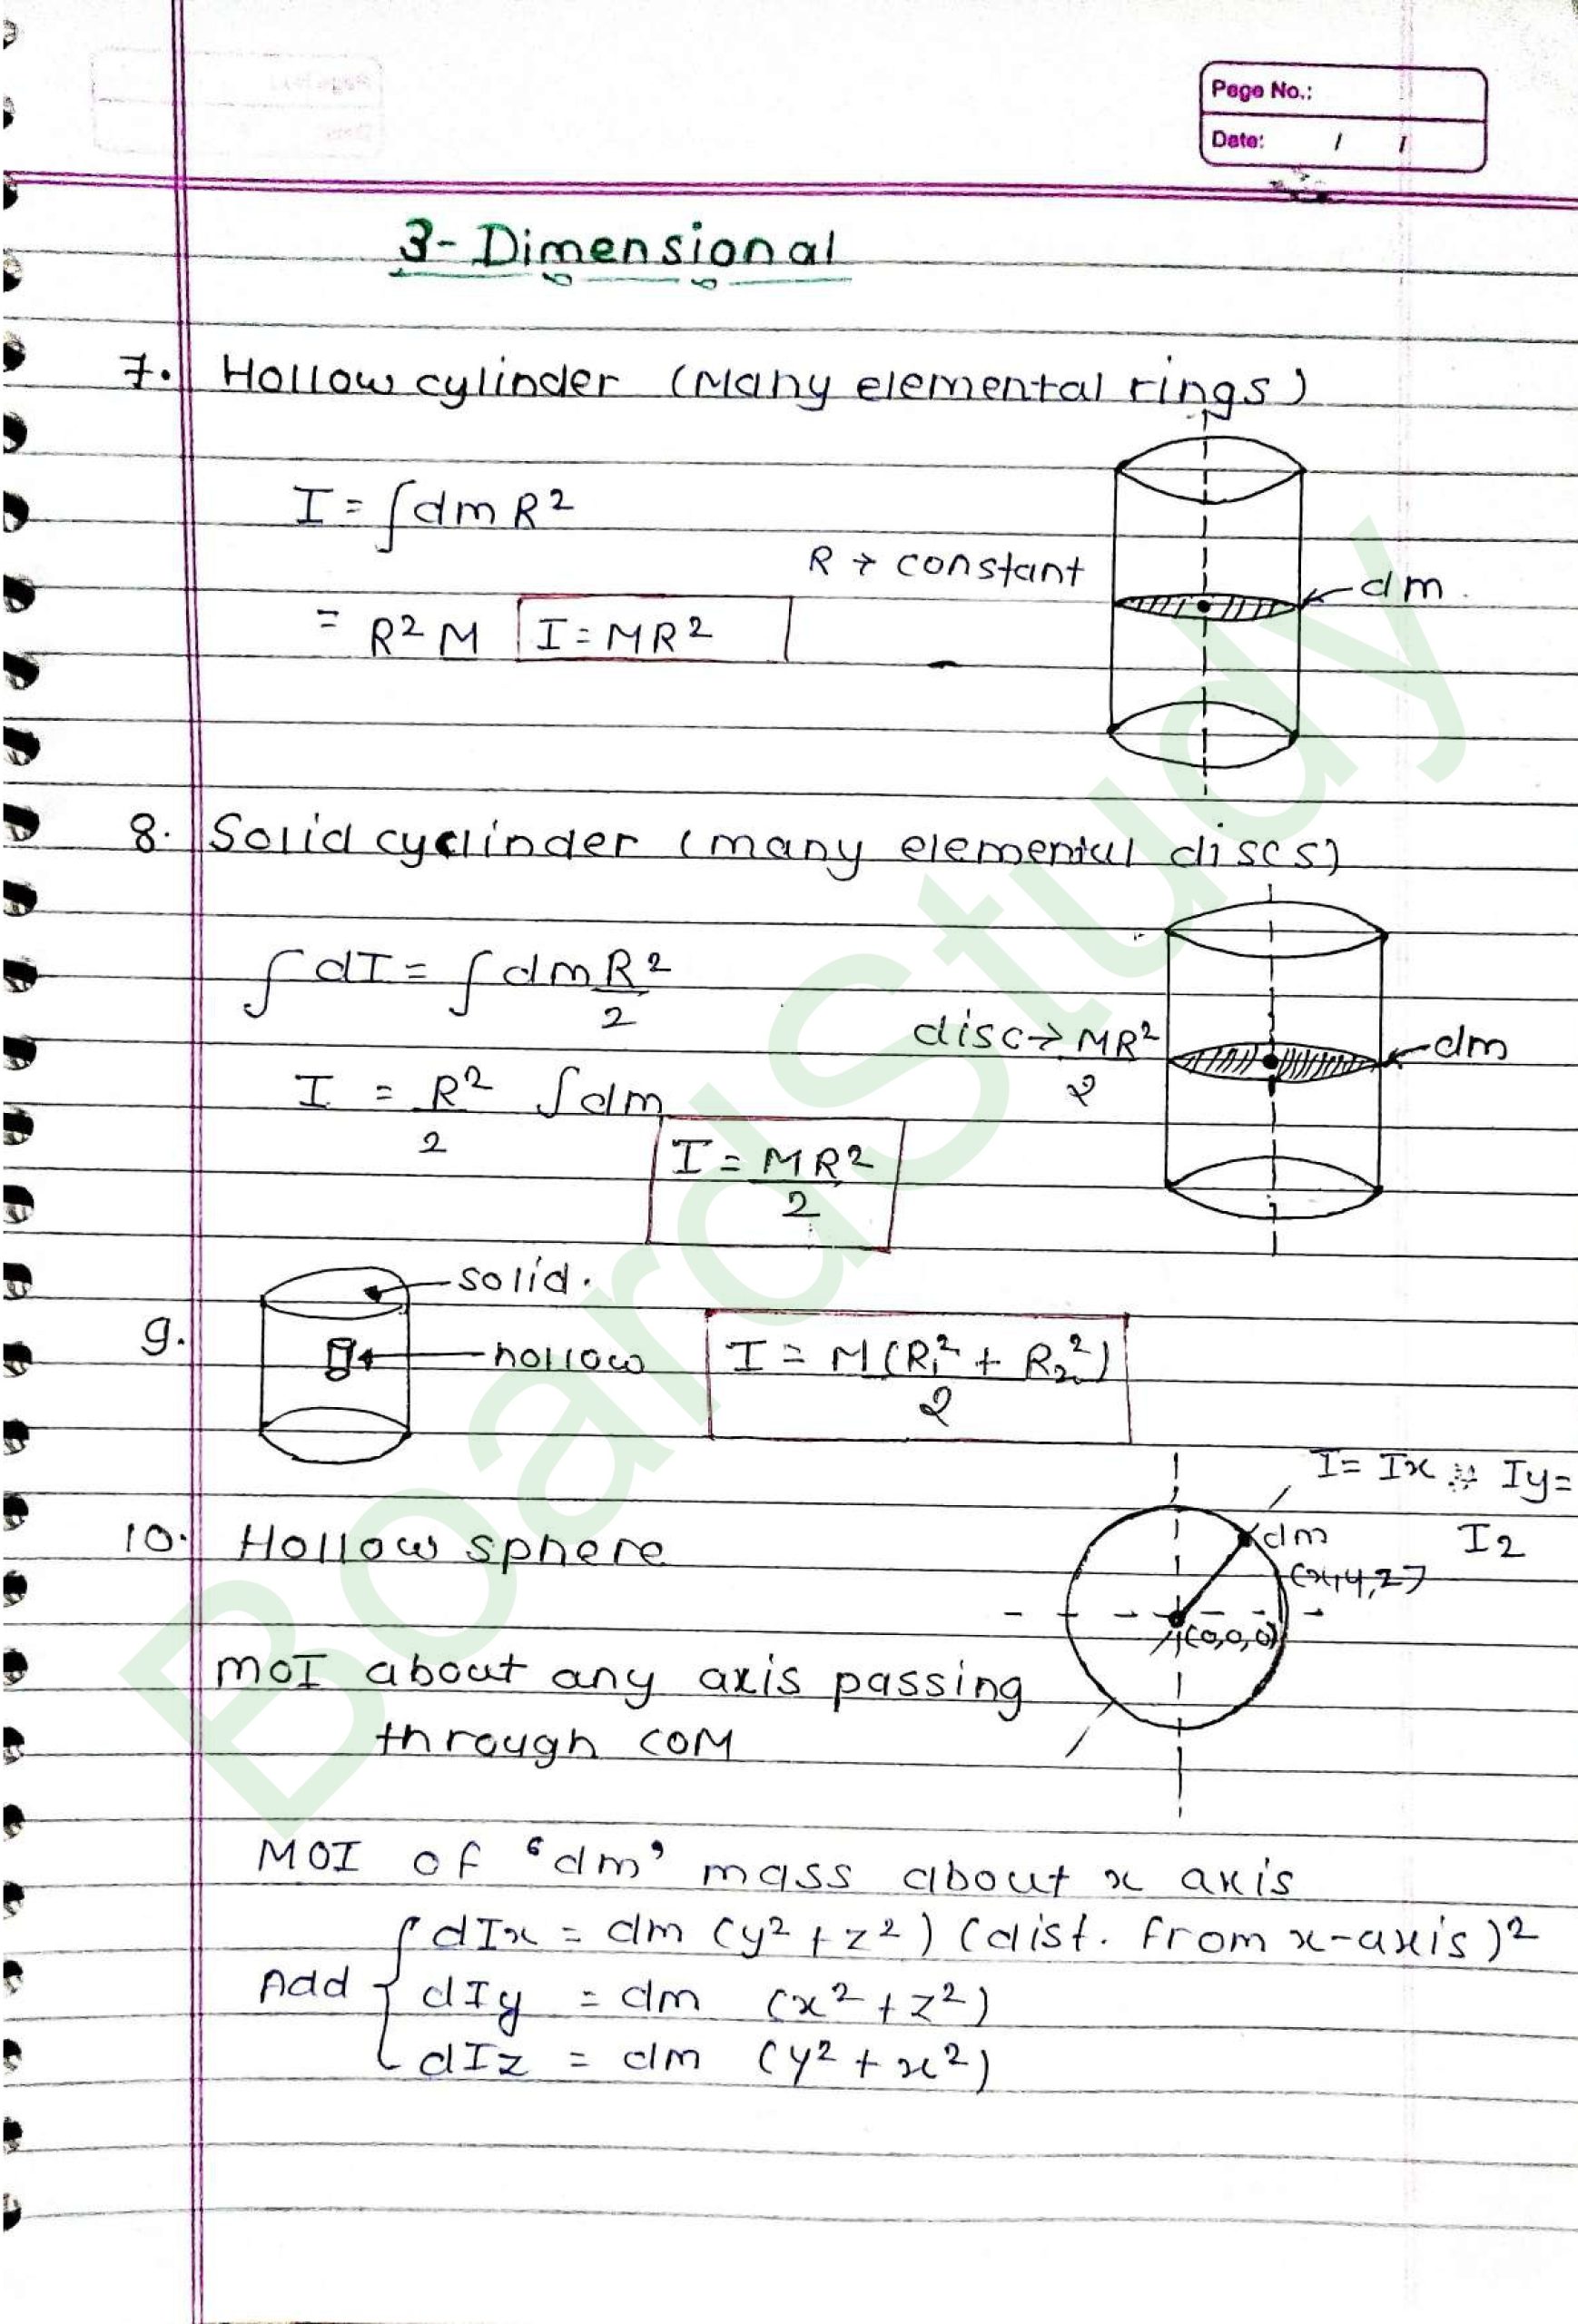 Page No.:
Date: / /
3-Dimensional
7. Hollow cylinder (Many elemental rings)
I = ∫dm R²
R → constant
dm
= R²M I = MR²
8. Solid cyclinder (many elemental discs)
∫dI = ∫dm R²/2
disc → MR²/2
dm
I = R²/2 ∫dm
I = MR²/2
solid.
9.
hollow
I = M(R₁² + R₂²)/2
I = Ix = Iy =
Iz
10. Hollow sphere
dm
(x,y,z)
(0,0,0)
MOI about any axis passing
through COM
MOI of 'dm' mass about x axis
dIx = dm (y² + z²) (dist. from x-axis)²
Add
dIy = dm (x² + z²)
dIz = dm (y² + x²)
BoardStudy